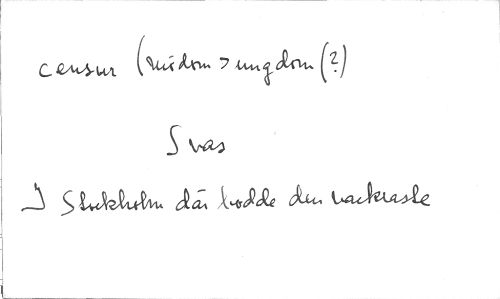 censur (misdom > ungdom (?)
Svas
I Stockholm där bodde den vackraste